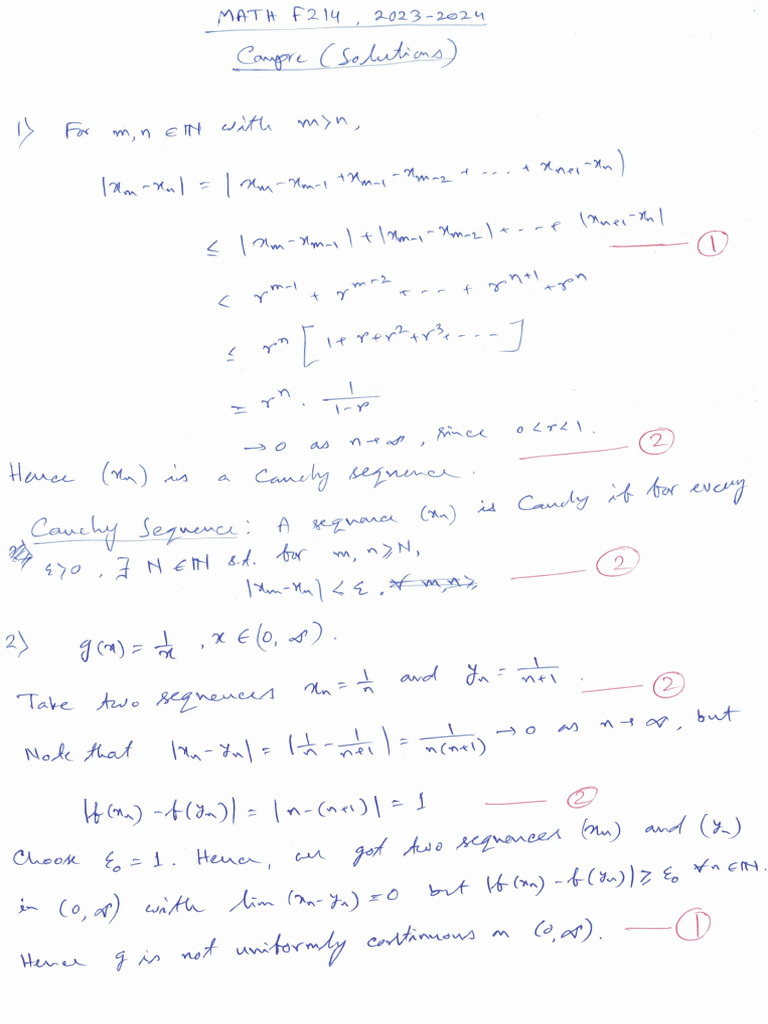 MATH F214, 2023-2024
Compre (Solutions)
1) For m, n ∈ ℕ with m>n,
|xm - xn| = |xm - xm-1 + xm-1 - xm-2 + ... + xn+1 - xn|
≤ |xm - xm-1| + |xm-1 - xm-2| + ... + |xn+1 - xn| — ①
< r^m-1 + r^m-2 + ... + r^n+1 + r^n
≤ r^n [1 + r + r² + r³ + ....]
= r^n . 1/(1-r)
→ 0 as n → ∞, since 0<r<1. — ②
Hence (xn) is a Cauchy sequence.
Cauchy Sequence: A sequence (xn) is Cauchy if for every
ε>0, ∃ N ∈ ℕ s.t. for m, n ≥ N,
|xm - xn| < ε, ∀ m, n ≥ — ②
2) g(x) = 1/x, x ∈ (0, ∞).
Take two sequences xn = 1/n and yn = 1/(n+1). — ②
Note that |xn - yn| = |1/n - 1/(n+1)| = 1/(n(n+1)) → 0 as n → ∞, but
|f(xn) - f(yn)| = |n-(n+1)| = 1 — ②
Choose ε₀ = 1. Hence, we got two sequences (xn) and (yn)
in (0, ∞) with lim (xn - yn) = 0 but |f(xn) - f(yn)| ≥ ε₀ ∀ n ∈ ℕ.
Hence g is not uniformly continuous on (0, ∞). — ①